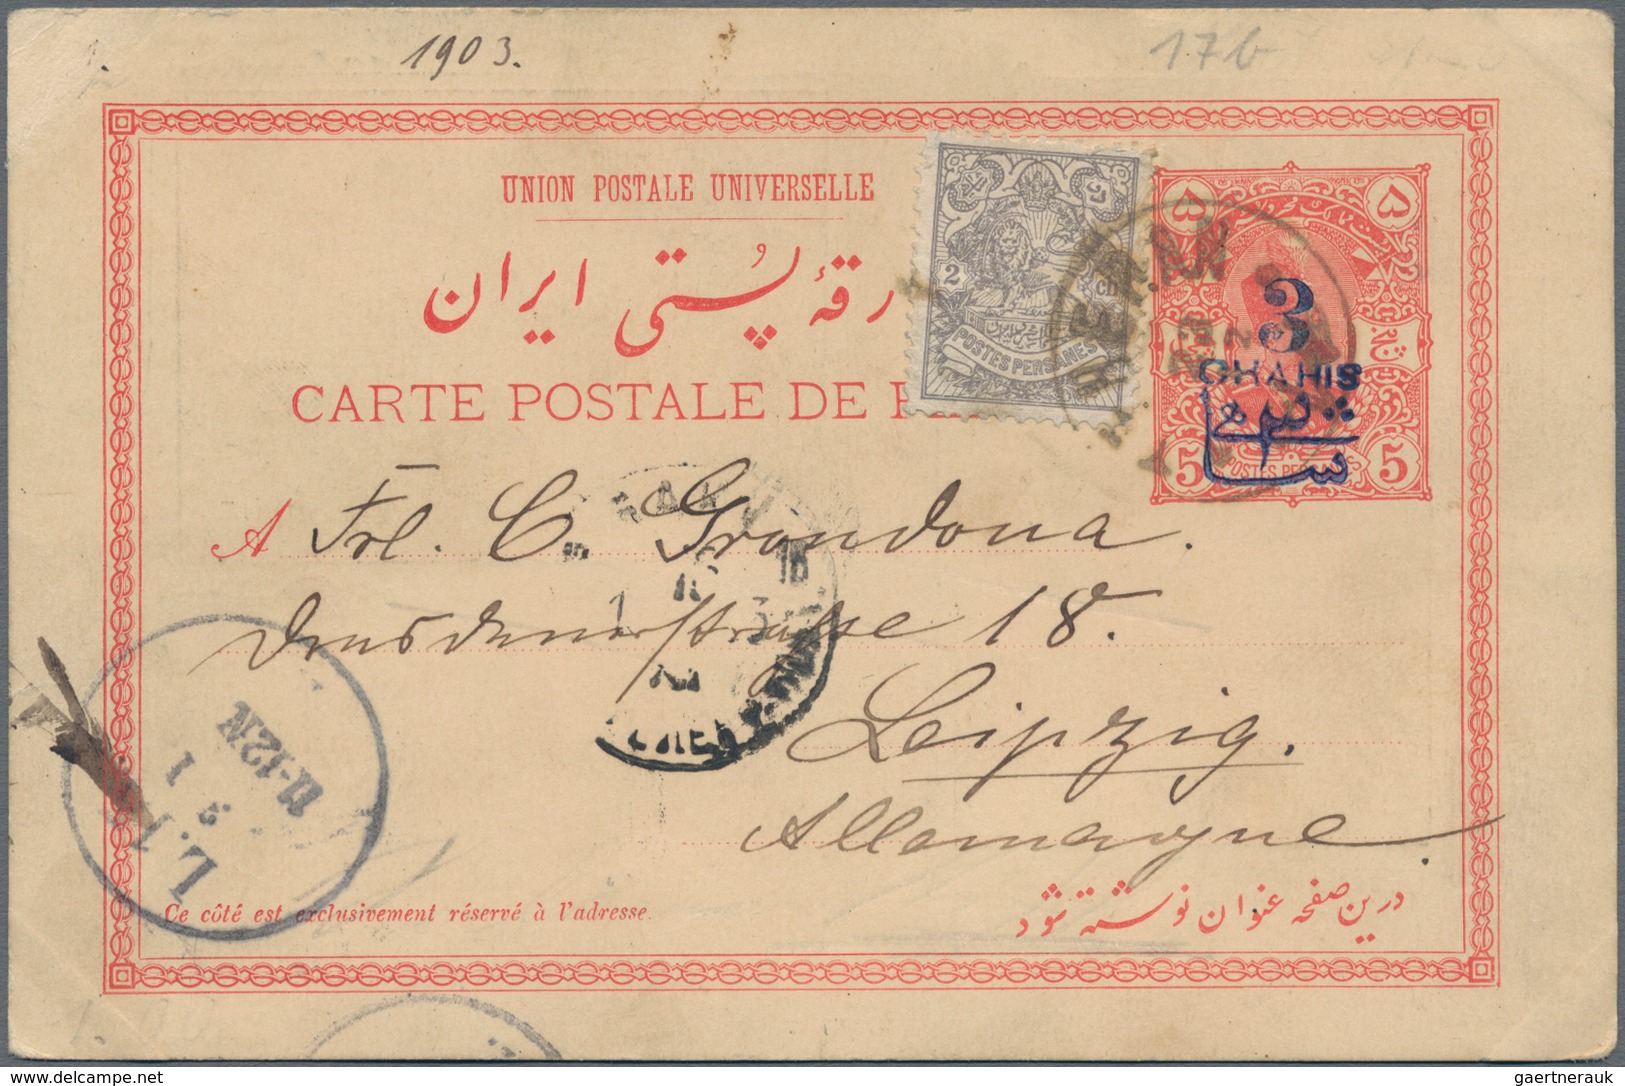 1903.
17b
UNION POSTALE UNIVERSELLE
رقهٔ پُستی ایران
CARTE POSTALE DE
2
ch
POSTES PERSANES
۵
۵
3
CHAHIS
5
POSTES PERSANES
5
A Frl. C. Grondona.
Dresdenerstrasse 18.
Leipzig.
Allemagne
11-12N
Ce côté est exclusivement réservé à l'adresse.
درین صفحه عنوان نوشته شود
Delcampe.net
gaertnerauk